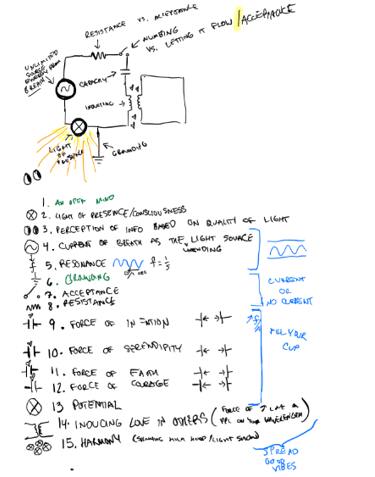 RESISTANCE VS. ACCEPTANCE
NUMBING
VS. LETTING IT FLOW /ACCEPTANCE
UNLIMITED
SOURCE
ENERGY FROM
BREATH
CAPACITY
INDUCTING
LIGHT
OF
PRESENCE
GROUNDING
1. AN OPEN MIND
2. LIGHT OF PRESENCE/CONSCIOUSNESS
3. PERCEPTION OF INFO BASED ON QUALITY OF LIGHT
4. CURRENT OF BREATH AS THE LIGHT SOURCE
5. RESONANCE
6. GROUNDING
7. ACCEPTANCE
8. RESISTANCE
CURRENT
OR
NO CURRENT
9. FORCE OF INTENTION
10. FORCE OF SERENDIPITY
11. FORCE OF FAITH
12. FORCE OF COURAGE
FILL YOUR
CUP
13 POTENTIAL
14. INDUCING LOVE IN OTHERS (FORCE OF
PPL ON YOUR WAVELENGTH)
15. HARMONY (SPINNING HULA HOOP/LIGHT SHOW)
SPREAD
GOOD
VIBES